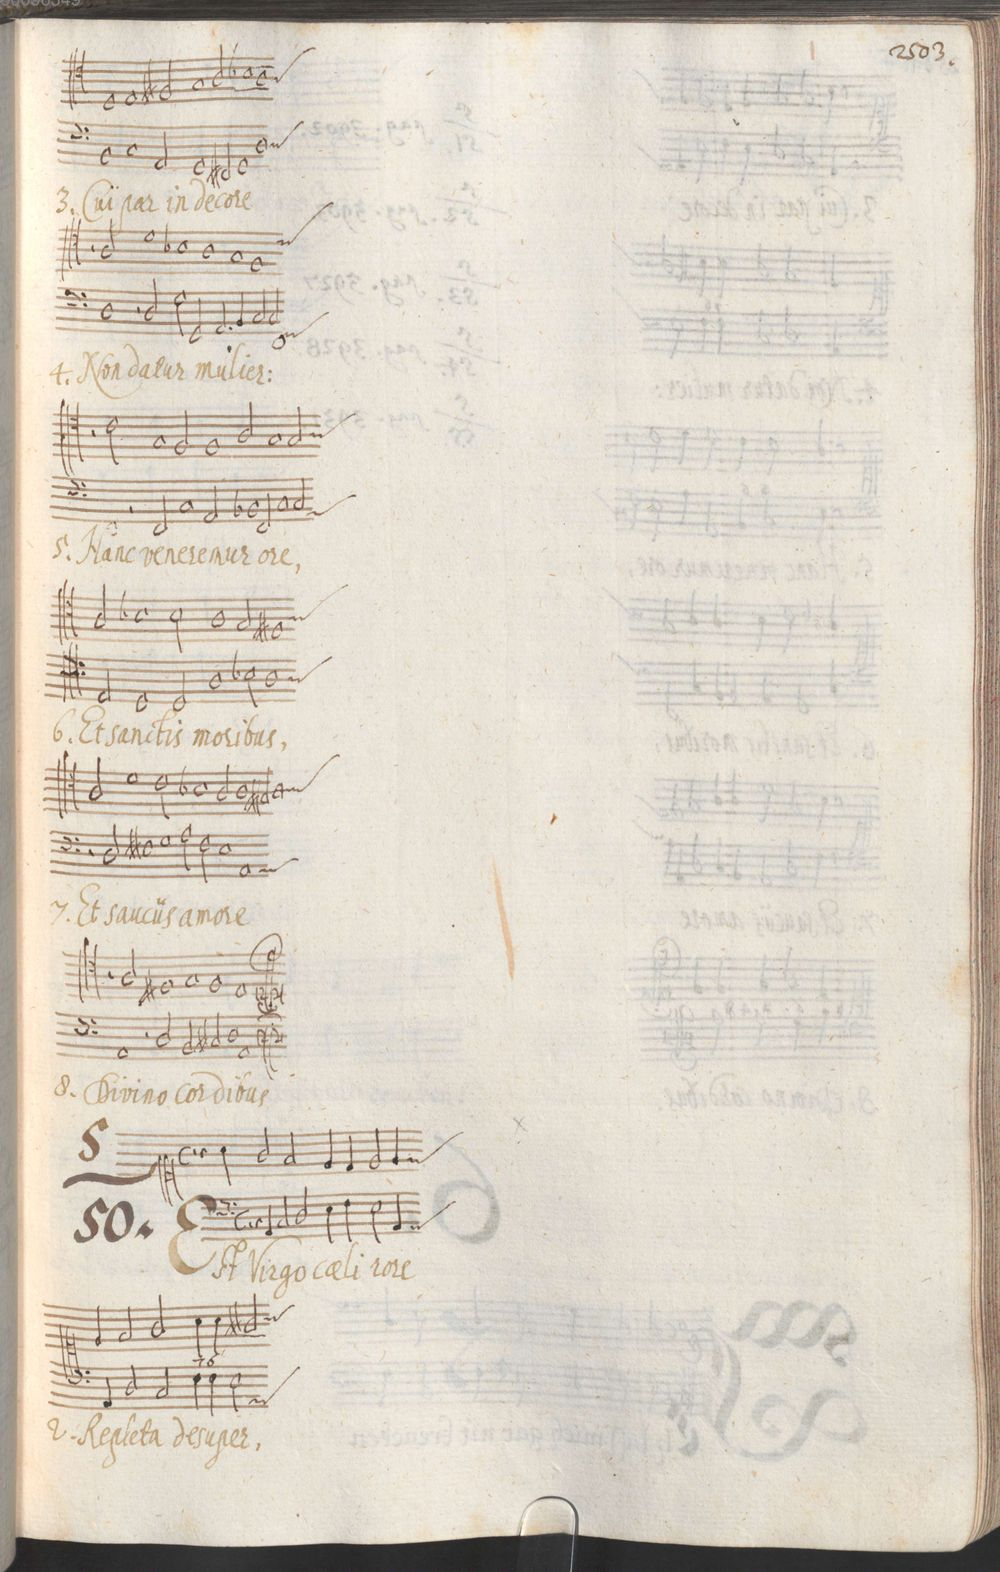 2503.
3. Cui par in decore
4. Non datur mulier:
5. Hanc veneremur ore,
6. Et sanctis moribus,
7. Et sauciis amore
8. Divino cordibus
5
50. Est Virgo cæli rore
2. Repleta desuper,